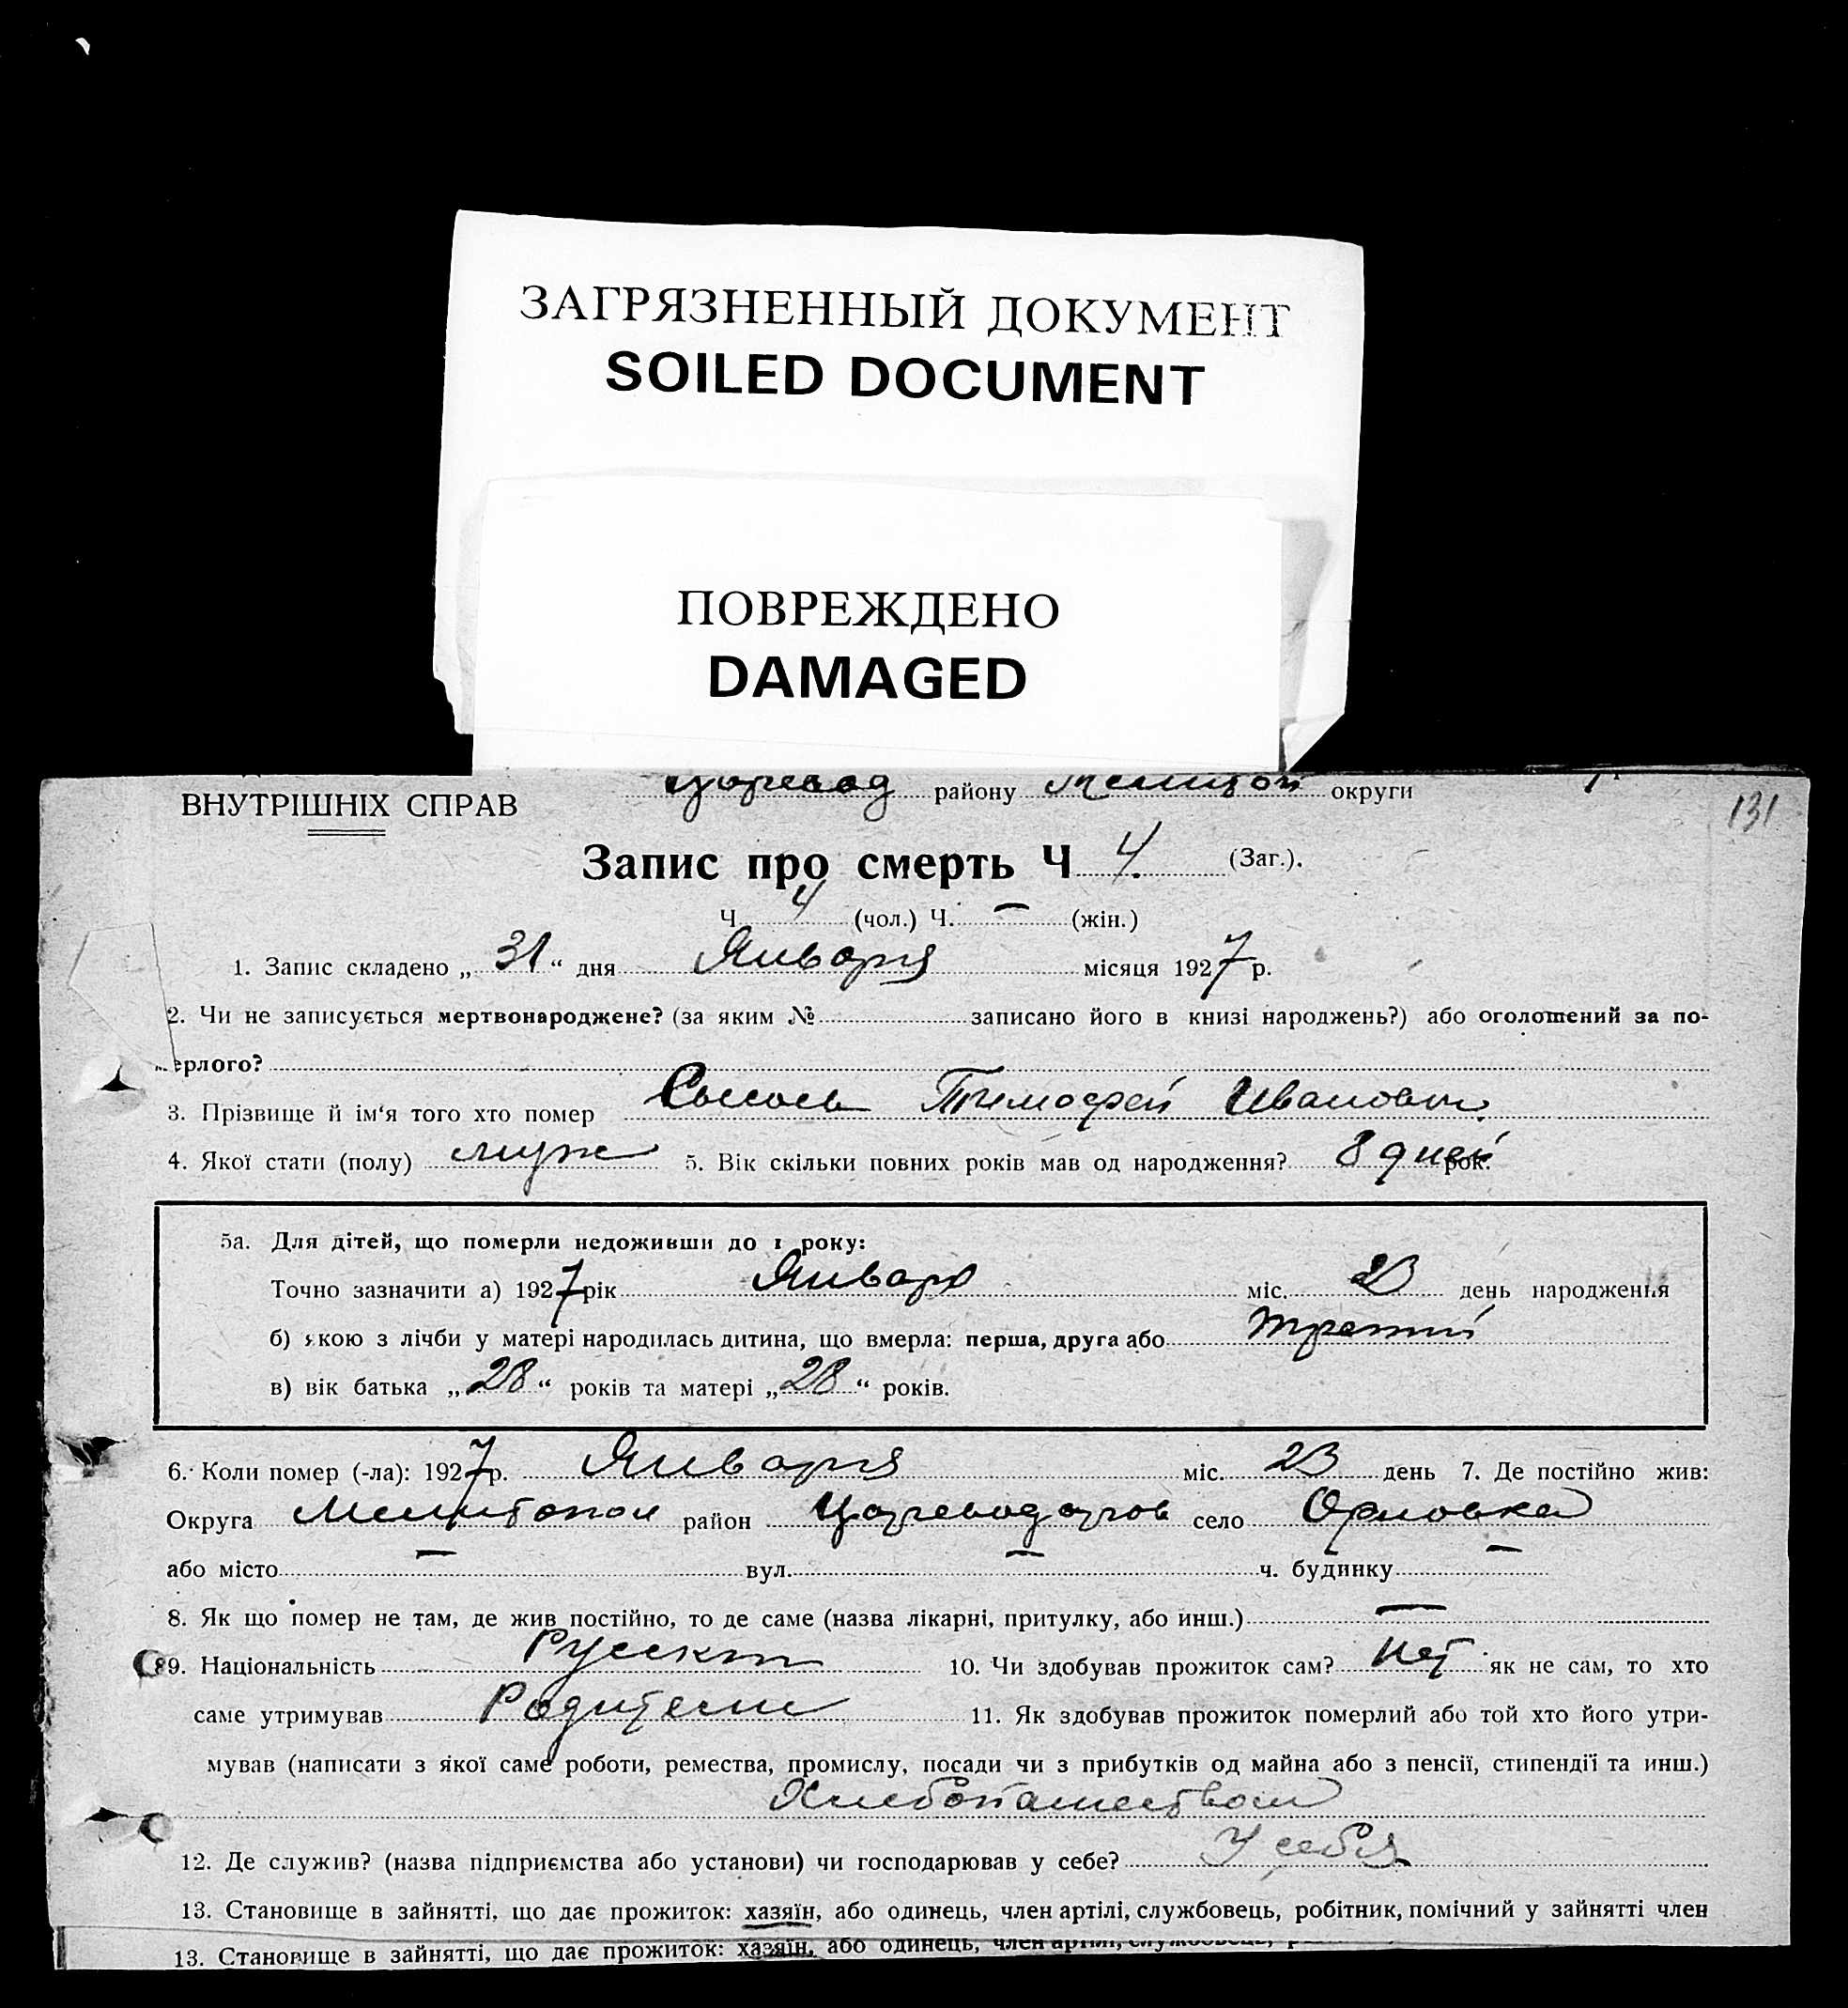 ЗАГРЯЗНЕННЫЙ ДОКУМЕНТ
SOILED DOCUMENT
ПОВРЕЖДЕНО
DAMAGED
району округи
ВНУТРІШНІХ СПРАВ
131
Запис про смерть Ч 4. (Заг.).
Ч. 4 (чол.) Ч. — (жін.)
1. Запис складено „31“ дня Января місяця 1927 р.
2. Чи не записується мертвонароджене? (за яким № записано його в книзі народжень?) або оголошений за по-
мерлого?
3. Прізвище й ім'я того хто помер Тимофей Иванович.
4. Якої стати (полу) муж 5. Вік скільки повних років мав од народження? 8 дней рок.
5а. Для дітей, що померли недоживши до 1 року:
Точно зазначити а) 1927 рік Января міс. 23 день народження
б) якою з лічби у матері народилась дитина, що вмерла: перша, друга або третий
в) вік батька „28“ років та матері „28“ років.
6. Коли помер (-ла): 1927 р. Января міс. 23 день 7. Де постійно жив:
Округа Мелитопол район Цареводаров село Орловка
або місто — вул. — ч. будинку —
8. Як що помер не там, де жив постійно, то де саме (назва лікарні, притулку, або инш.) —
9. Національність Русский 10. Чи здобував прожиток сам? Нет як не сам, то хто
саме утримував Родители 11. Як здобував прожиток померлий або той хто його утри-
мував (написати з якої саме роботи, ремества, промислу, посади чи з прибутків од майна або з пенсії, стипендії та инш.)
Хлебопашеством
12. Де служив? (назва підприємства або установи) чи господарював у себе? У себя
13. Становище в зайнятті, що дає прожиток: хазяїн, або одинець, член артілі, службовець, робітник, помічний у зайнятті член
13. Становище в зайнятті, що дає прожиток: хазяїн, або одинець, член артілі, службовець,